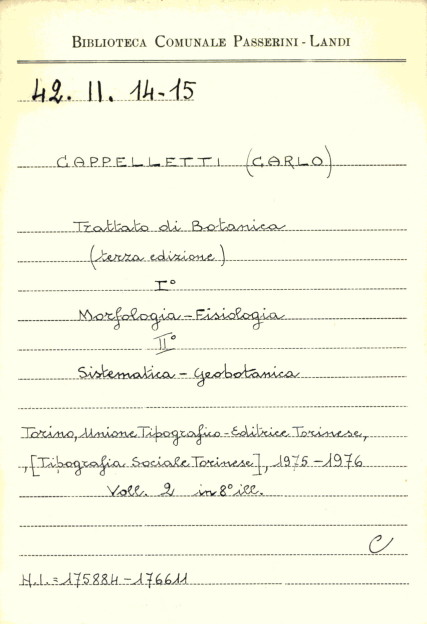 BIBLIOTECA COMUNALE PASSERINI - LANDI
42. II. 14-15
CAPPELLETTI (CARLO)
Trattato di Botanica
(terza edizione)
I°
Morfologia - Fisiologia
II°
Sistematica - Geobotanica
Torino, Unione Tipografico-Editrice Torinese,
,[Tipografia Sociale Torinese], 1975-1976
Voll. 2 in 8° ill.
C
N.I. = 175884-176611